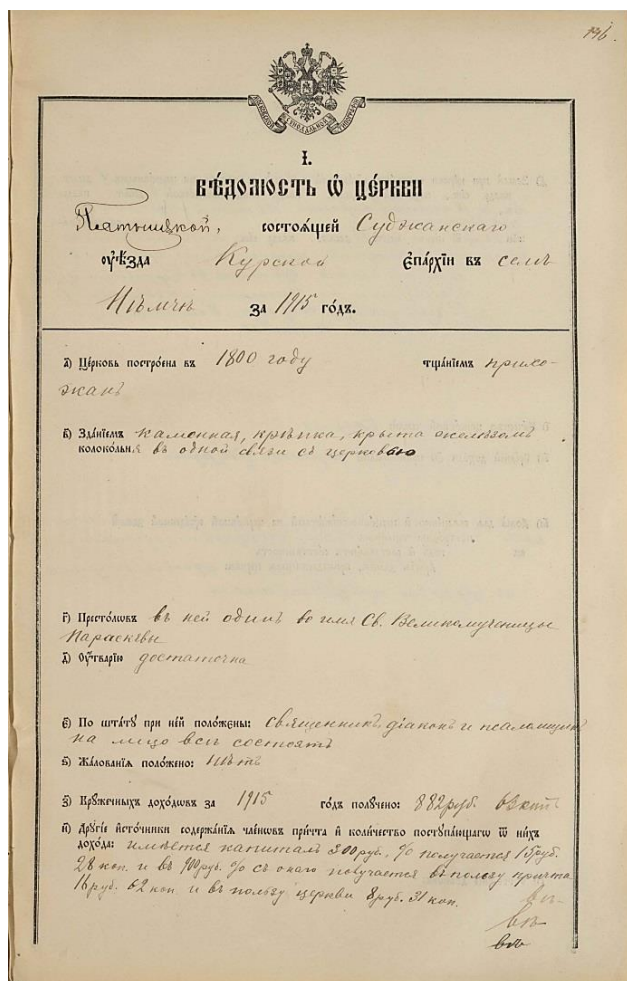 146.
МОСКОВСКОЙ СѴНОДАЛЬНОЙ ТИПОГРАФІИ
І.
ВѢ́ДОМОСТЬ Ѡ҆ ЦЕ́РКВИ
Пятницкой, состоѧ́щей Суджанскаго
ᲂу҆ѣ́зда Курской є҆па́рхїи въ селѣ
Нѣмчѣ за 1915 го́дъ.
а҃) Це́рковь постро́ена въ 1800 году тща́нїемъ прихо-
жанъ
в҃) Зда́нїемъ каменная, крѣпка, крыта желѣзомъ
колоко́льнѧ въ одной связи съ церковью
г҃) Престо́лѡвъ въ ней одинъ во имя Св. Великомученицы
Параскевы
д҃) Оу҆́тварїю достаточна
є҃) По шта́ту при не́й поло́жены: Священникъ, діаконъ и псаломщикъ
на лицо всѣ состоятъ
ѕ҃) Жа́лованїѧ поло́жено: нѣтъ
з҃) Крꙋ́жечныхъ дохо́дѡвъ за 1915 го́дъ полꙋ́чено: 882 руб. 63 коп.
и҃) Дрꙋгі́е и҆сто́чники содержа́нїѧ чле́нѡвъ при́чта и҆ коли́чество постꙋпа́ющагѡ ѿ ни́хъ
дохо́да: имѣется капиталъ 300 руб., % получается 15 руб.
28 коп. и въ 900 руб. % съ онаго получается въ пользу причта
16 руб. 62 коп. и въ пользу церкви 8 руб. 31 коп.